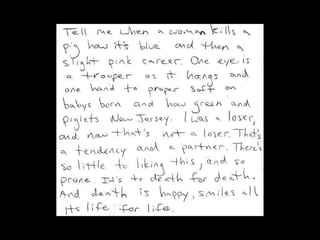 Tell me when a woman kills a
pig how it's blue and then a
slight pink career. One eye is
a trouper as it hangs and
one hand to proper soft on
babys born and how green and
piglets New Jersey. I was a loser,
and now that's not a loser. That's
a tendency and a partner. There's
so little to liking this, and so
prone. It's to death for death.
And death is happy, smiles all
its life for life.